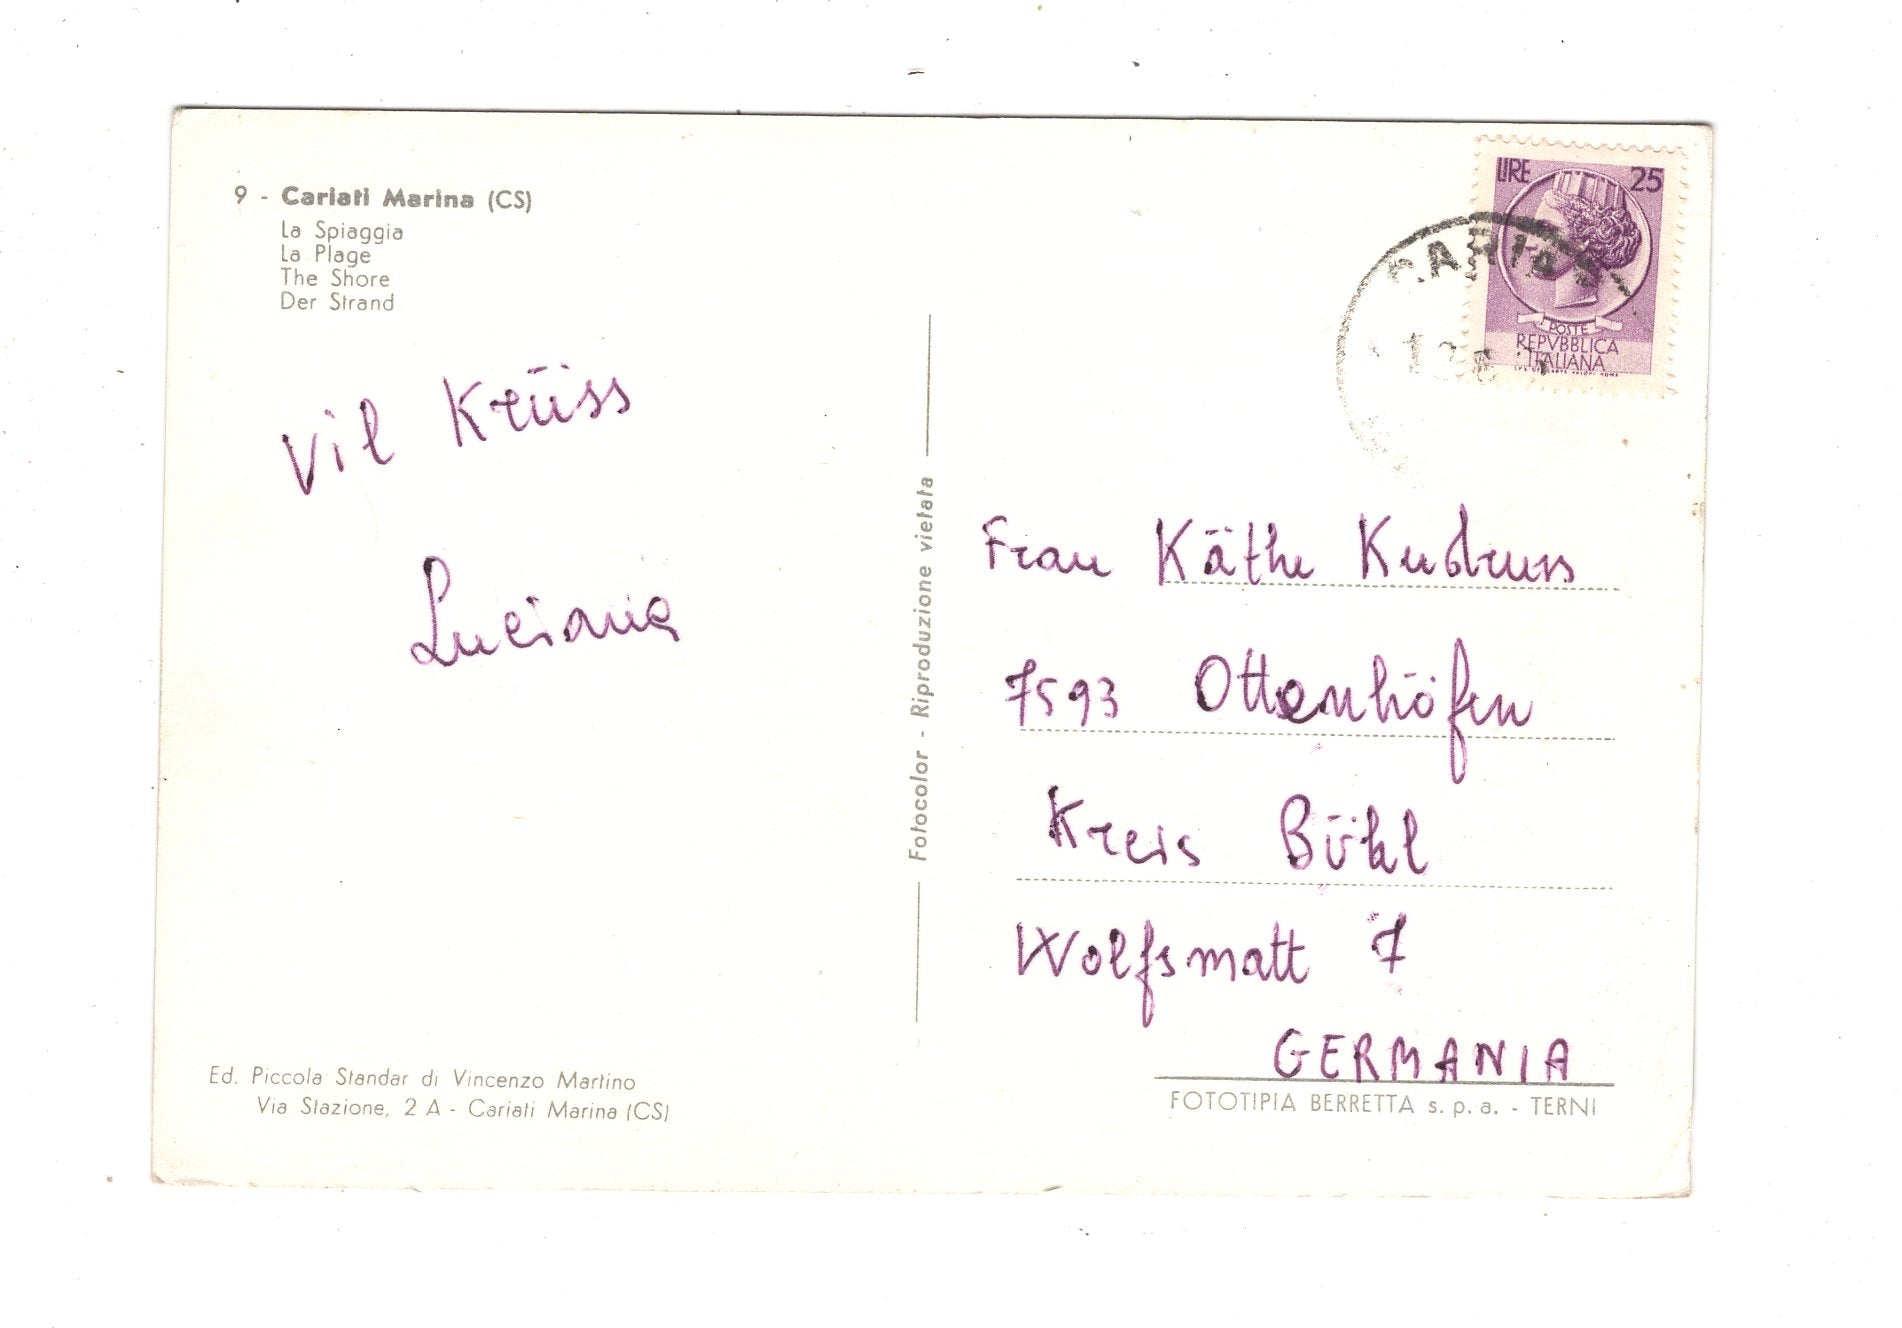 9 - Cariati Marina (CS)
La Spiaggia
La Plage
The Shore
Der Strand
Vil Krüss
Luciana
Ed. Piccola Standar di Vincenzo Martino
Via Stazione, 2 A - Cariati Marina (CS)
Fotocolor - Riproduzione vietata
LIRE 25
POSTE
REPVBBLICA
ITALIANA
Frau Käthe
7593 Ottenhöfen
Kreis Bühl
Wolfsmatt 7
GERMANIA
FOTOTIPIA BERRETTA s.p.a. - TERNI